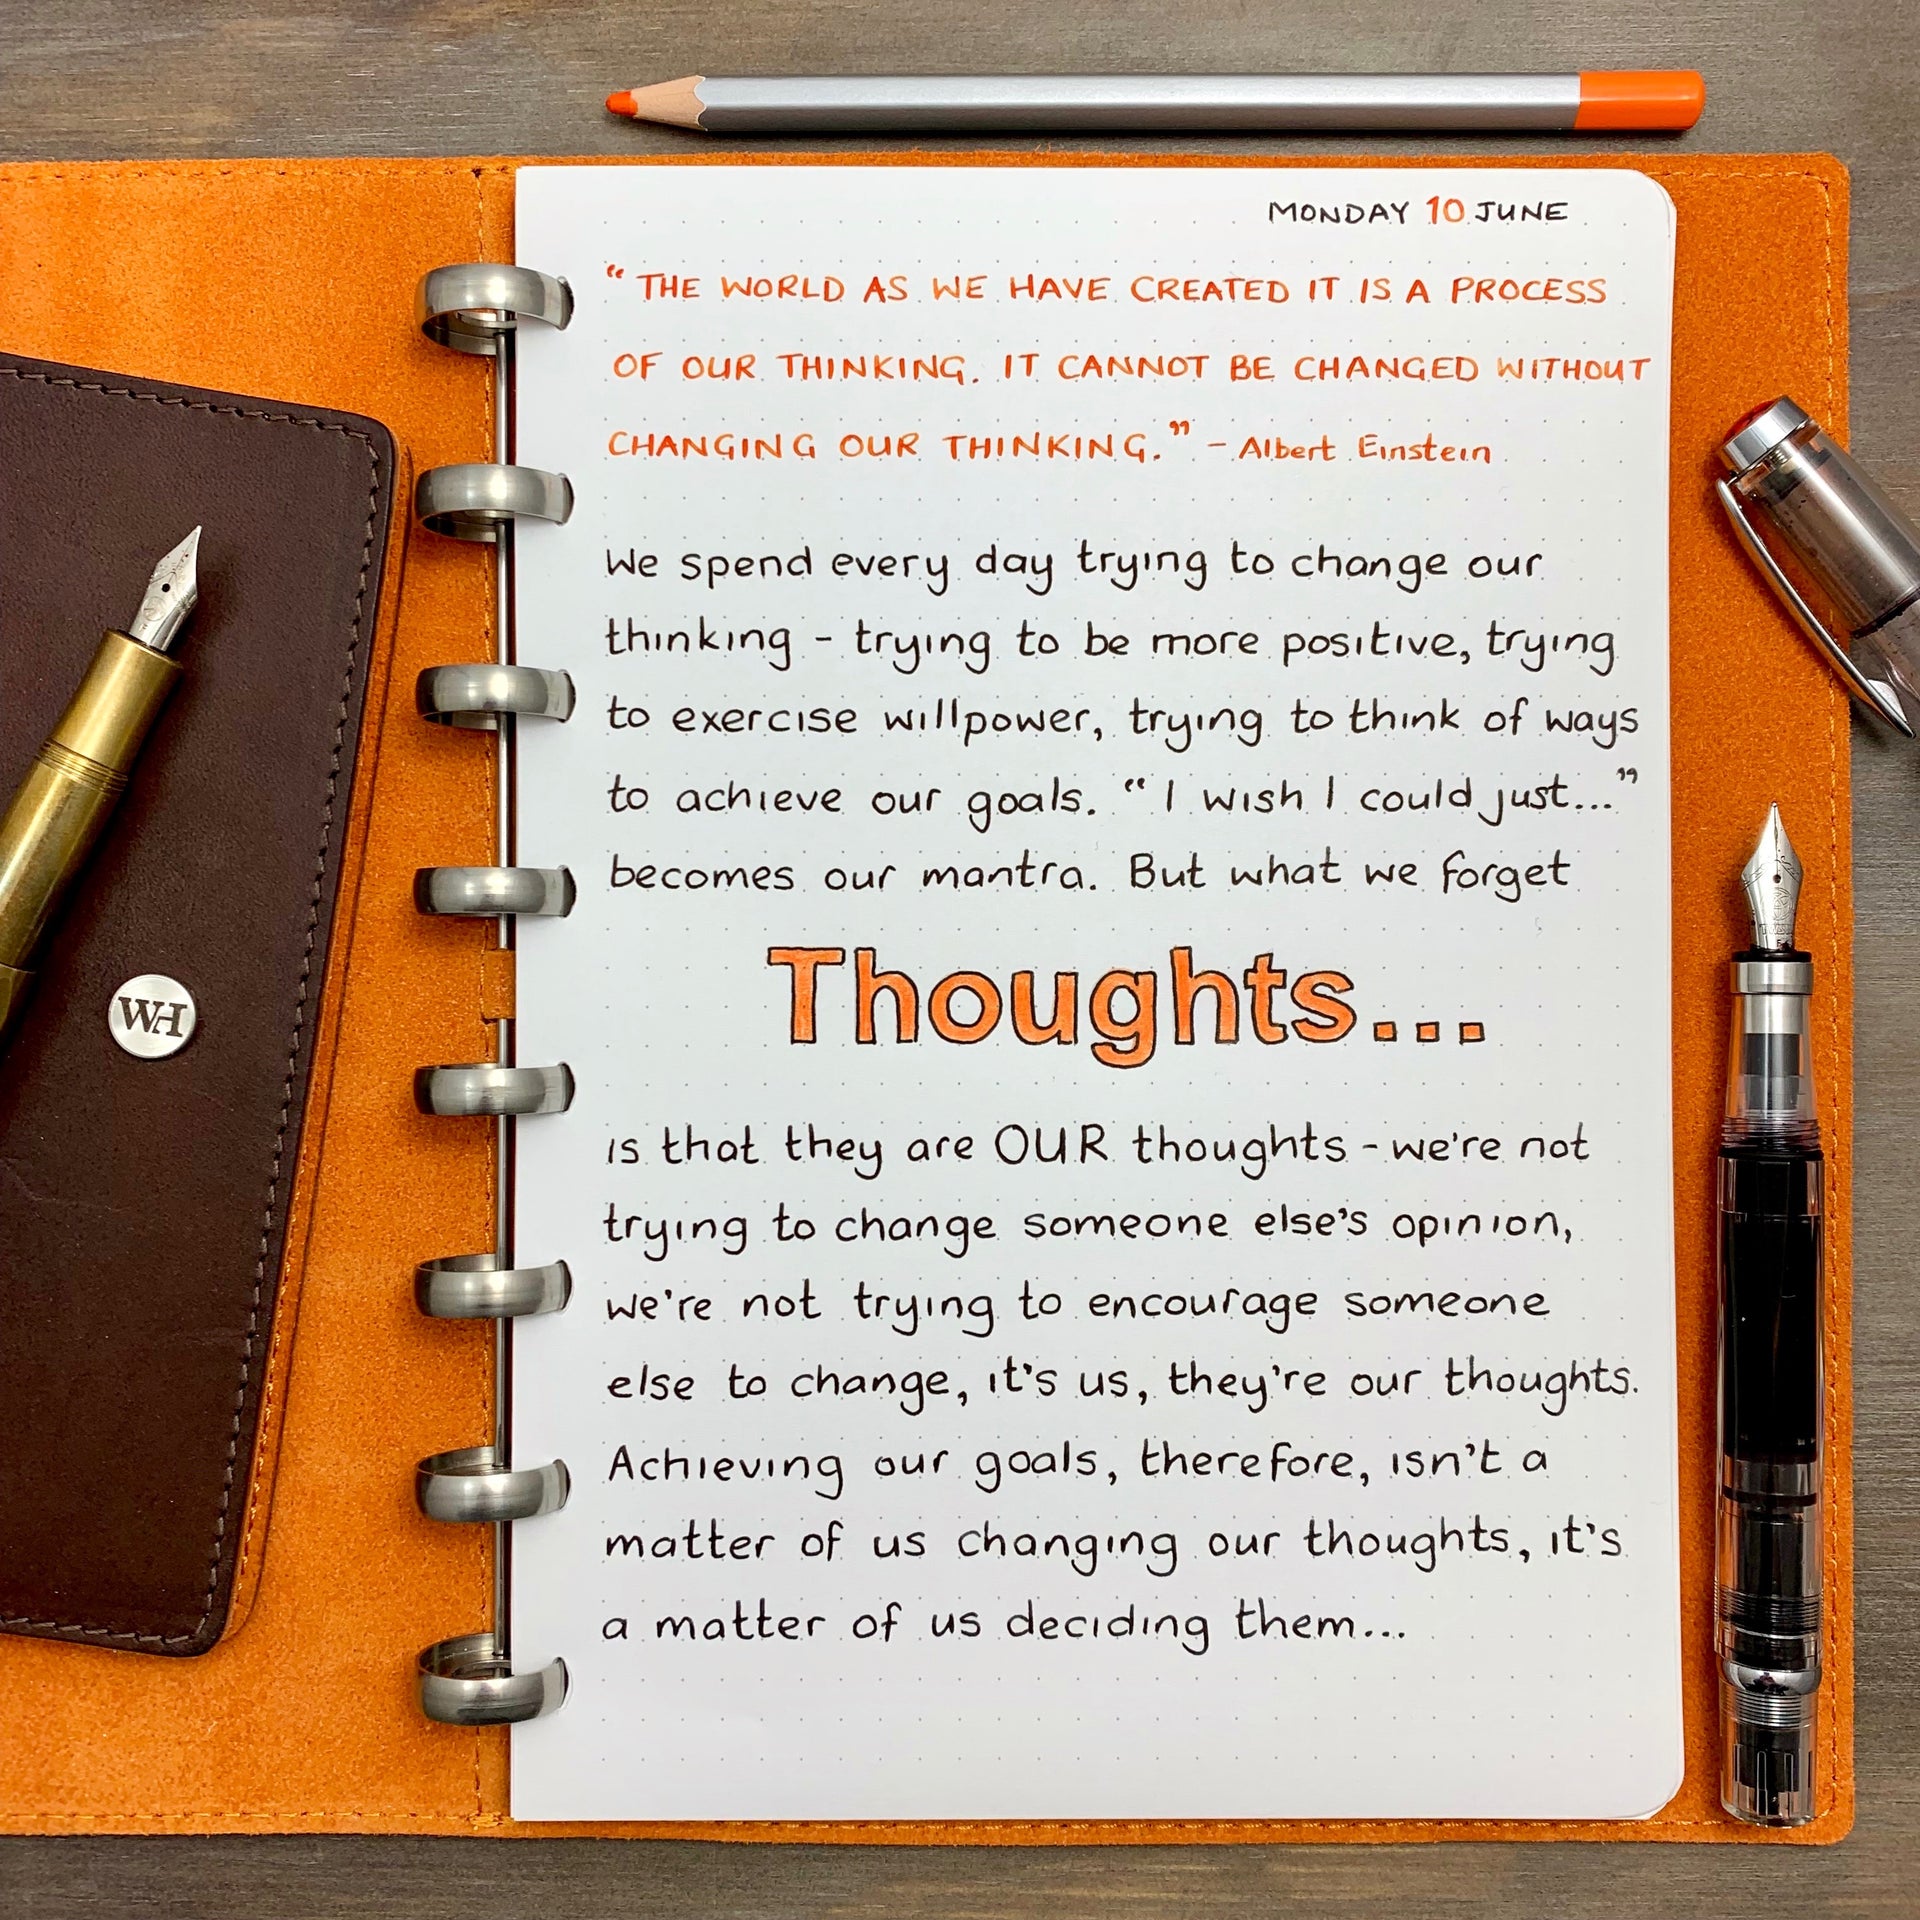 MONDAY 10 JUNE
“THE WORLD AS WE HAVE CREATED IT IS A PROCESS
OF OUR THINKING. IT CANNOT BE CHANGED WITHOUT
CHANGING OUR THINKING.” - Albert Einstein
We spend every day trying to change our
thinking - trying to be more positive, trying
to exercise willpower, trying to think of ways
to achieve our goals. “I wish I could just...”
becomes our mantra. But what we forget
Thoughts...
is that they are OUR thoughts - we're not
trying to change someone else's opinion,
we're not trying to encourage someone
else to change, it's us, they're our thoughts.
Achieving our goals, therefore, isn't a
matter of us changing our thoughts, it's
a matter of us deciding them...
WH